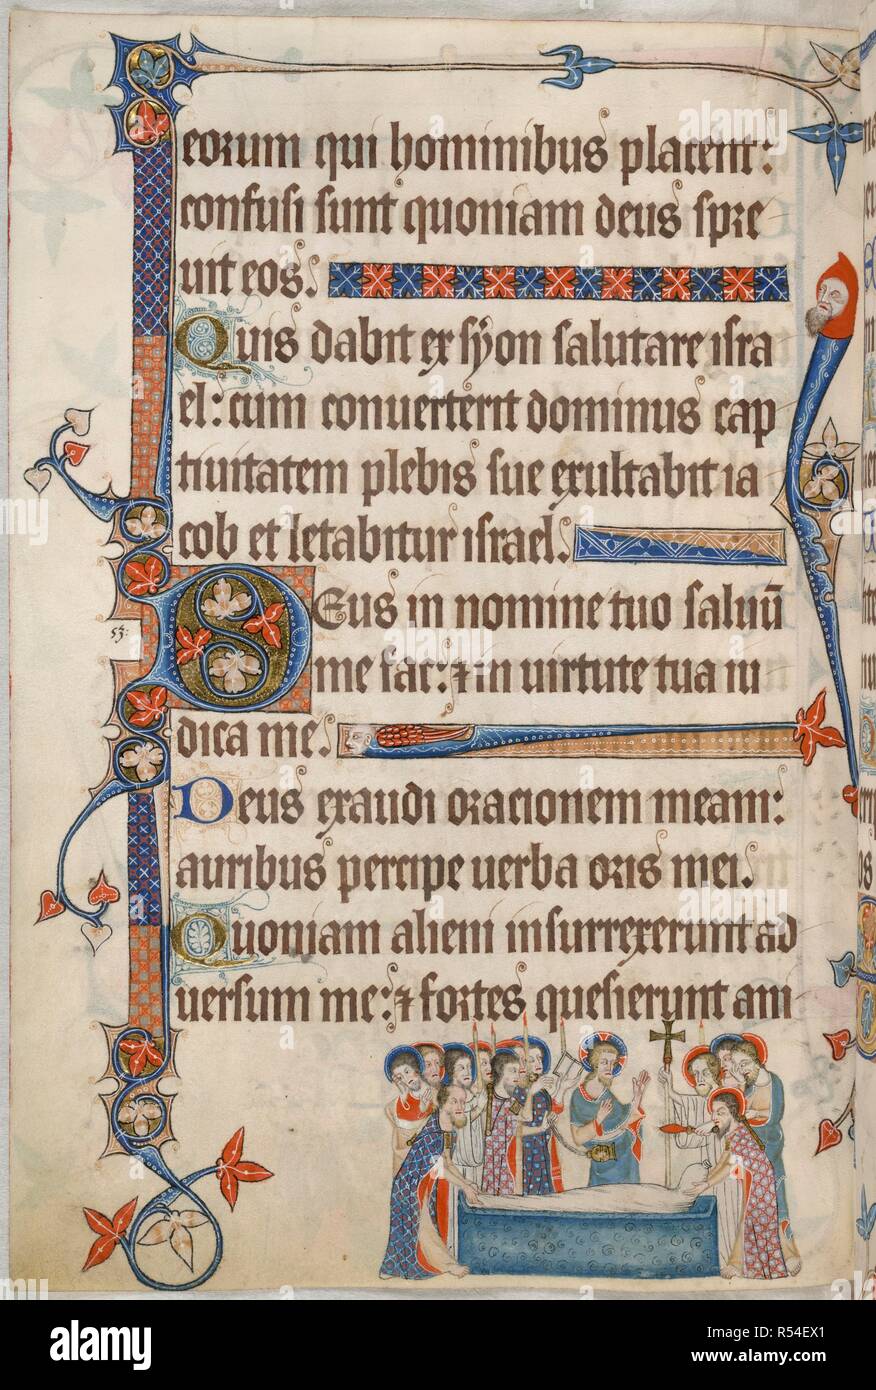 eorum qui hominibus placent:
confusi sunt quoniam deus spre
uit eos.
Quis dabit ex syon salutare isra
el: cum conuerterit dominus cap
tiuitatem plebis sue exultabit ia
cob et letabitur israel.
Deus in nomine tuo saluū
53:
me fac: ⁊ in uirtute tua iu
dica me.
Deus exaudi oracionem meam:
auribus percipe uerba oris mei.
Quoniam alieni insurrexerunt ad
uersum me: ⁊ fortes quesierunt ani
alamy
a
alamy stock photo
Image ID: R54EX1
www.alamy.com